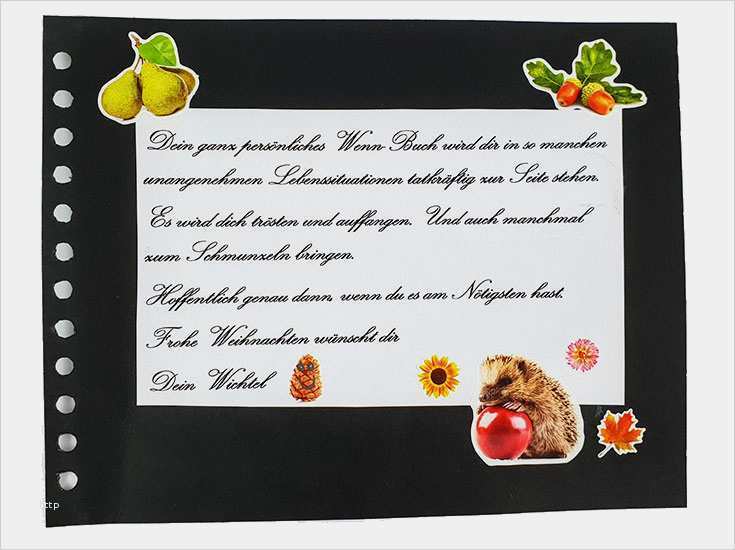 Dein ganz persönliches Wenn-Buch wird dir in so manchen
unangenehmen Lebenssituationen tatkräftig zur Seite stehen.
Es wird dich trösten und auffangen. Und auch manchmal
zum Schmunzeln bringen.
Hoffentlich genau dann, wenn du es am Nötigsten hast.
Frohe Weihnachten wünscht dir
Dein Wichtel
ttp